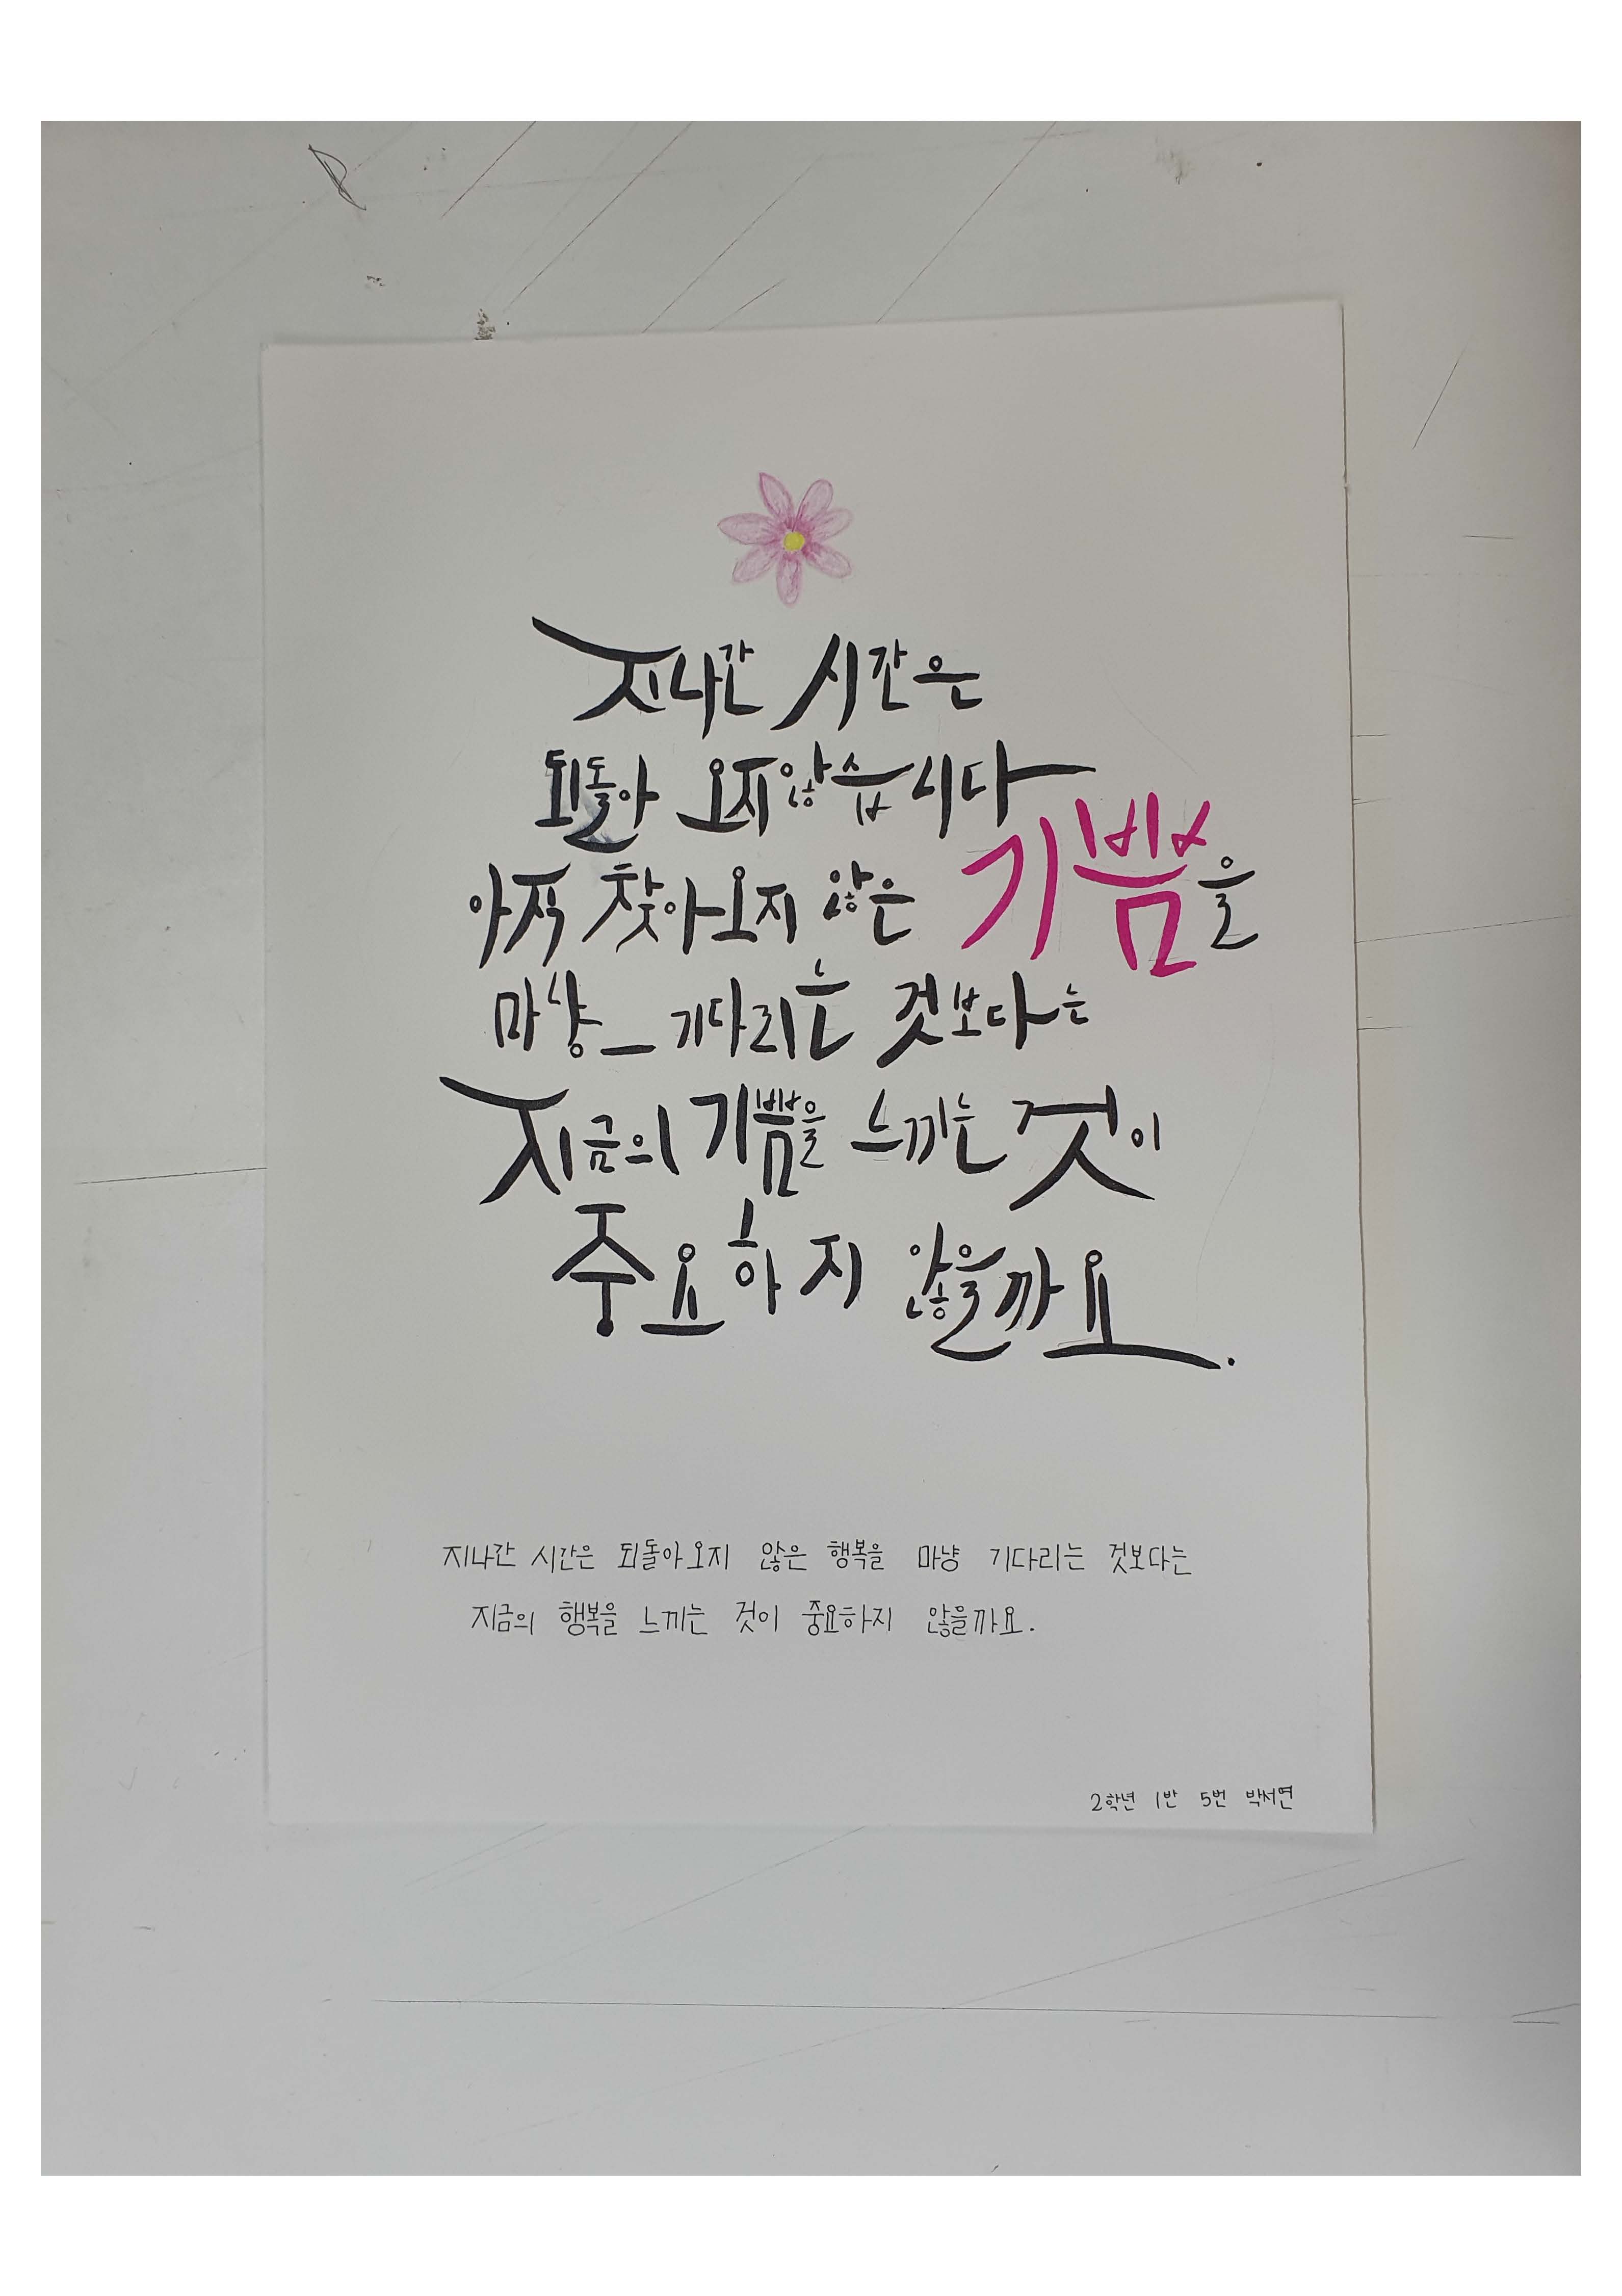 지나간 시간은
되돌아 오지않습니다
아직 찾아오지 않은 기쁨을
마냥 기다리는 것보다는
지금의 기쁨을 느끼는 것이
중요하지 않을까요.
지나간 시간은 되돌아오지 않은 행복을 마냥 기다리는 것보다는
지금의 행복을 느끼는 것이 중요하지 않을까요.
2학년 1반 5번 박서연